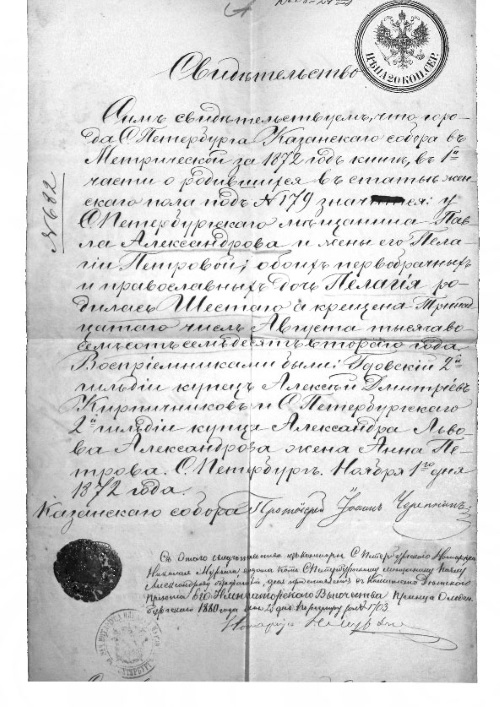 ЦѢНА 20 КОП. СЕР.
Свидѣтельство
Симъ свидѣтельствуемъ, что горо-
да С.Петербурга Казанскаго собора въ
Метрической за 1872 годъ книгѣ, въ 1ой
части о родившихся въ статьѣ жен-
скаго пола подъ №179 значится: у
С.Петербургскаго мѣщанина Пав-
ла Александрова и жены его Пела-
гіи Петровой, обоихъ первобрачныхъ
и православныхъ дочь Пелагія ро-
дилась Шестаго а крещена Тринад-
цатаго числъ Августа тысяча во-
семьсотъ семьдесятъ втораго года.
Воспріемниками были: Гдовскій 2ой
гильдіи купецъ Алексѣй Дмитріевъ
Кирпичниковъ и С.Петербургскаго
2ой гильдіи купца Александра Льво-
ва Александрова жена Анна Пе-
трова. С.Петербургъ. Ноября 1го дня
1872 года.
Казанскаго собора Протоіерей Іоаннъ
№682
Съ сего С.Петербургскаго
Николая С.Петербургскому мѣщанину Павлу
Александрову въ
Его Императорскаго Высочества Принца Ольден-
бургскаго 1880 года 1703
Нотаріусъ